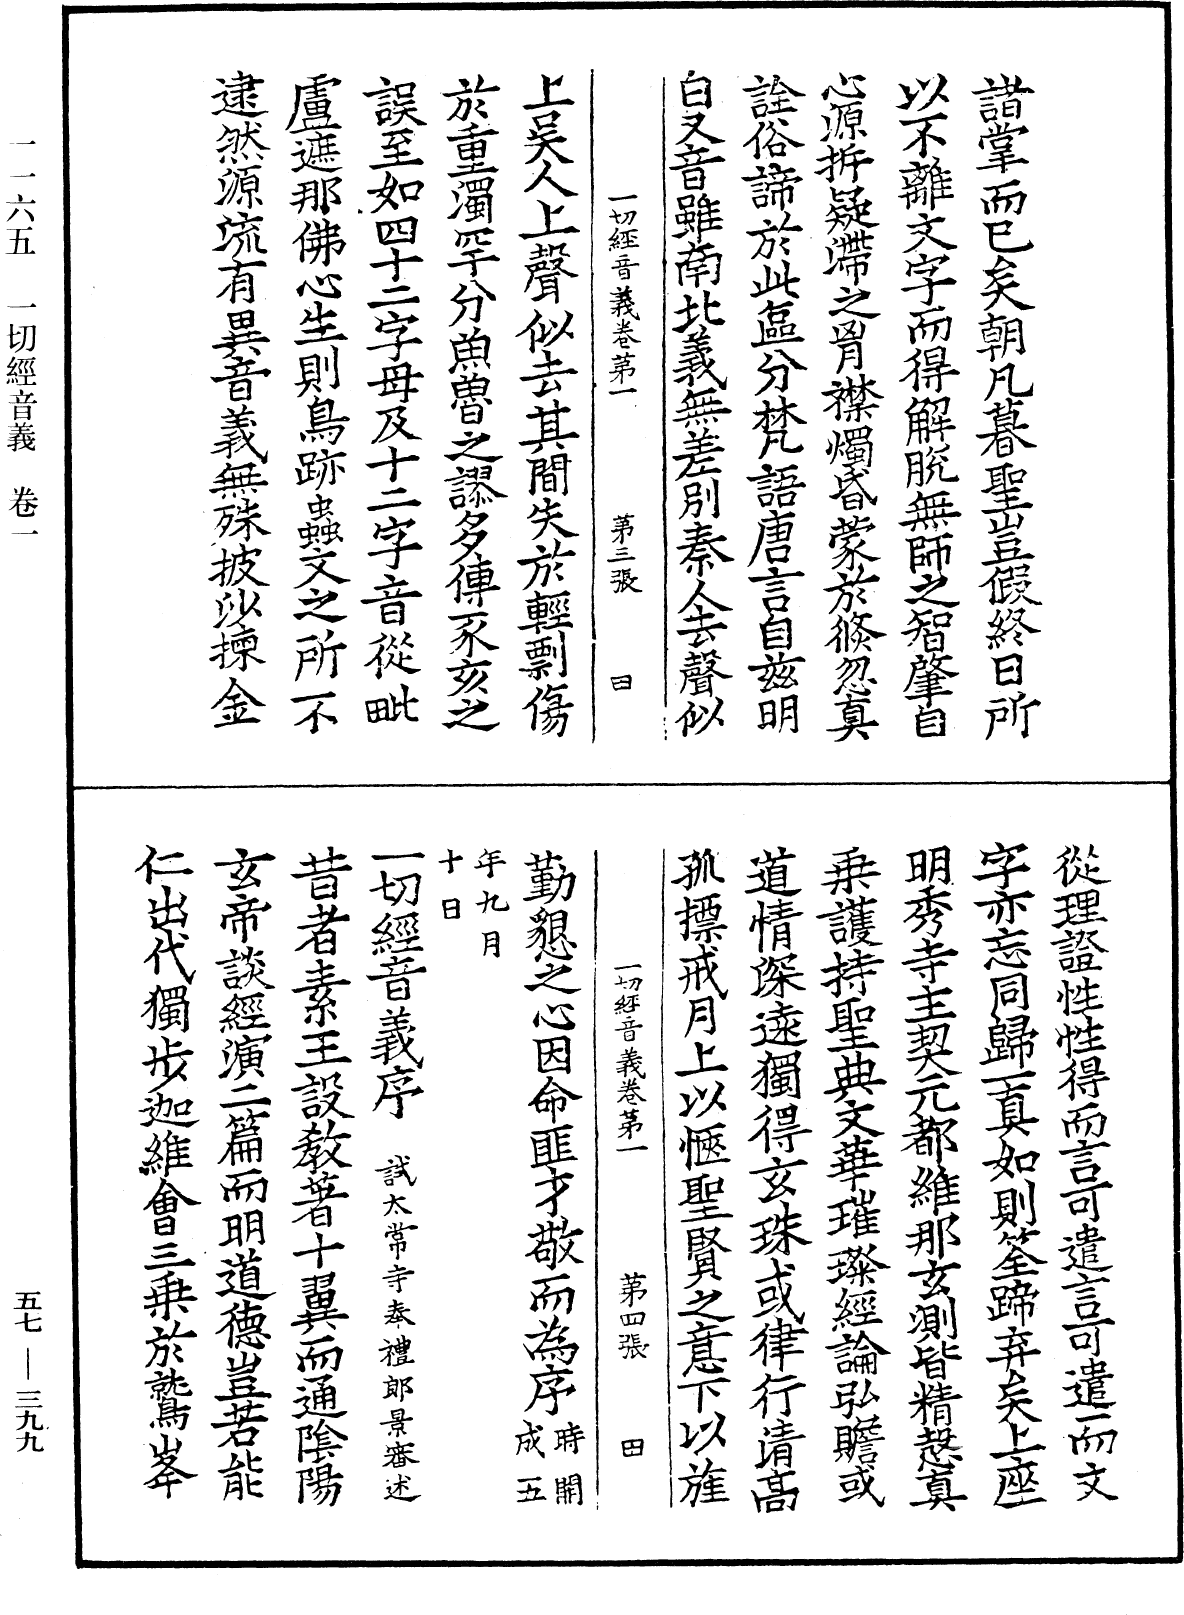 諧掌而已矣朝凡暮聖豈假終日所
以不離文字而得解脫無師之智肇自
心源拆疑滯之胷襟燭昏蒙於倏忽真
詮俗諦於此區分梵語唐言自兹明
白又音雖南北義無差別秦人去聲似
一切經音義卷第一 第三張 田
上吴人上聲似去其間失於輕剽傷
於重濁罕分魚魯之謬多傳豕亥之
誤至如四十二字母及十二字音從毗
盧遮那佛心生則鳥跡蟲文之所不
逮然源流有異音義無殊披沙揀金
從理證性性得而言可遣言可遣而文
字亦忘同歸一真如則筌蹄弃矣上座
明秀寺主契元都維那玄測皆精慤真
乗護持聖典文華璀璨經論弘贍或
道情深遠獨得玄珠或律行清高
孤摽戒月上以愜聖賢之意下以旌
一切經音義卷第一 第四張 田
勤懇之心因命匪才敬而為序時開成五
年九月十日
一切經音義序 試太常寺奉禮郎景審述
昔者素王設教著十翼而通陰陽
玄帝談經演二篇而明道德豈若能
仁出代獨步迦維會三乗於鷲峯
一一六五 一切經音義 卷一
五七—三九九